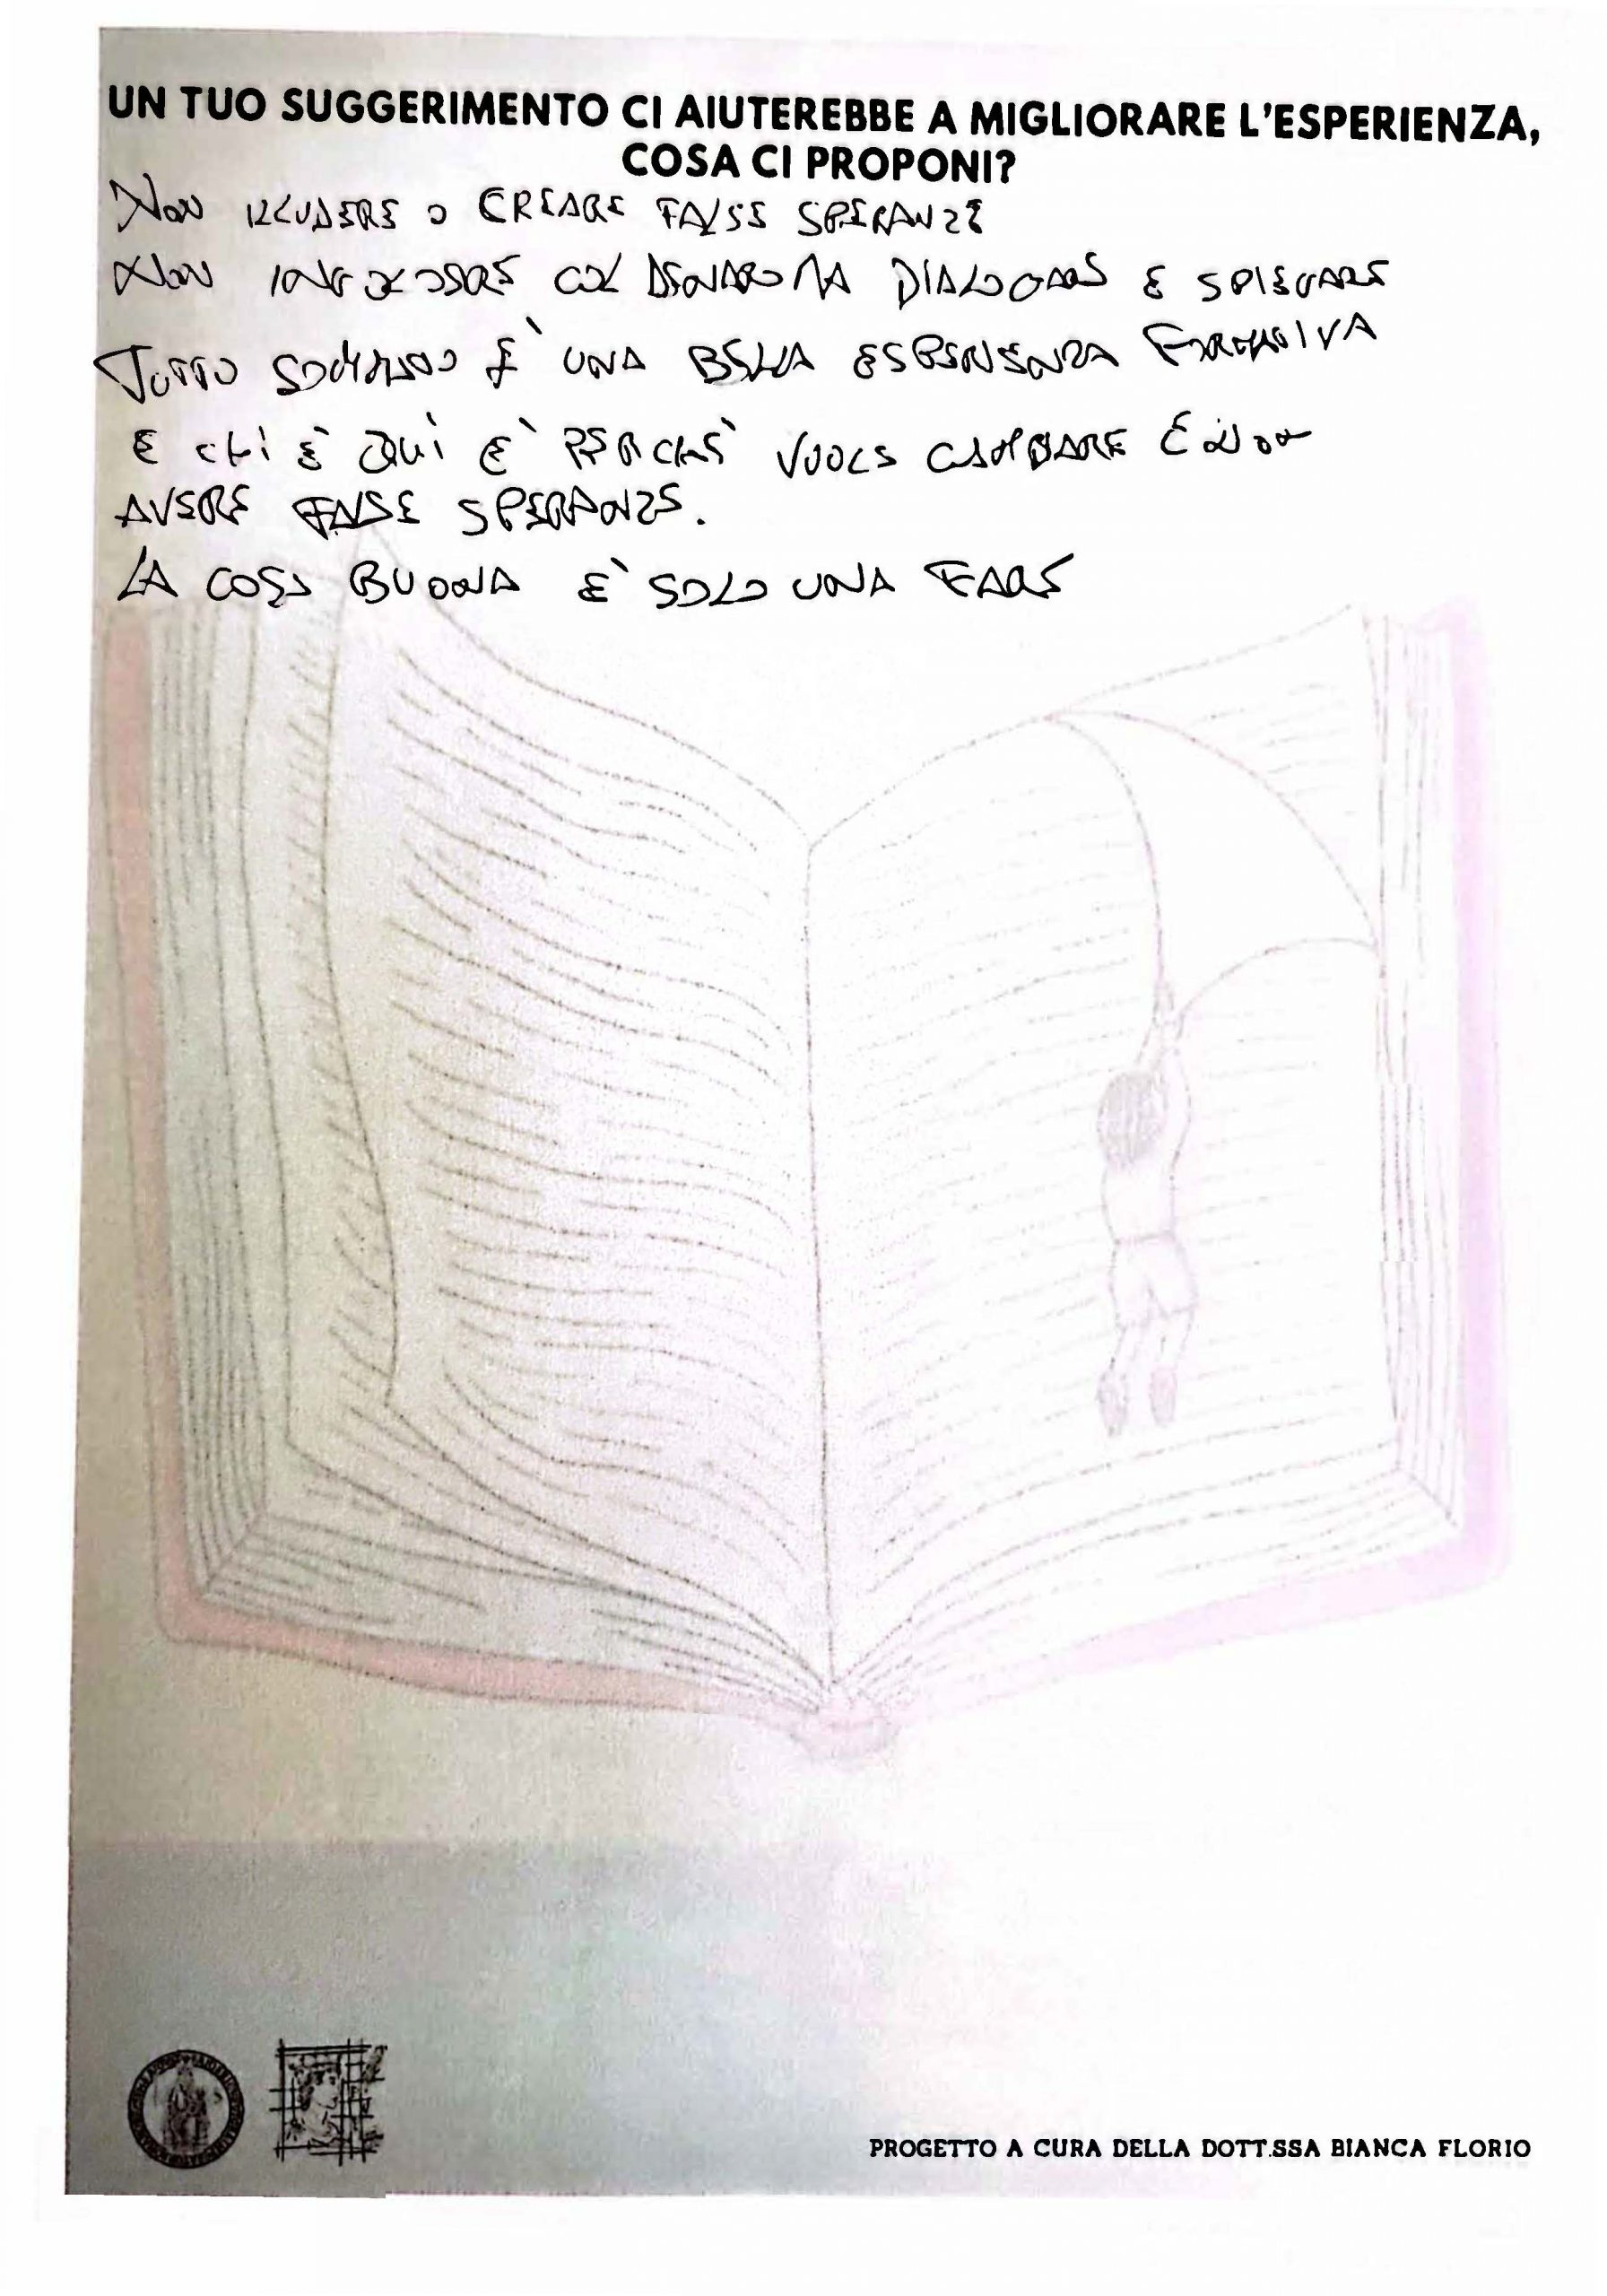 UN TUO SUGGERIMENTO CI AIUTEREBBE A MIGLIORARE L'ESPERIENZA,
COSA CI PROPONI?
NON ILLUDERE O CREARE FALSE SPERANZE
NON COL DENARO MA DIALOGARE E SPIEGARE
TUTTO SOMMATO È UNA BELLA ESPERIENZA FORMATIVA
E CHI È QUI È PERCHÈ VUOLE CAMBIARE E NON
AVERE FALSE SPERANZE.
LA COSA BUONA È SOLO UNA FARE
PROGETTO A CURA DELLA DOTT.SSA BIANCA FLORIO